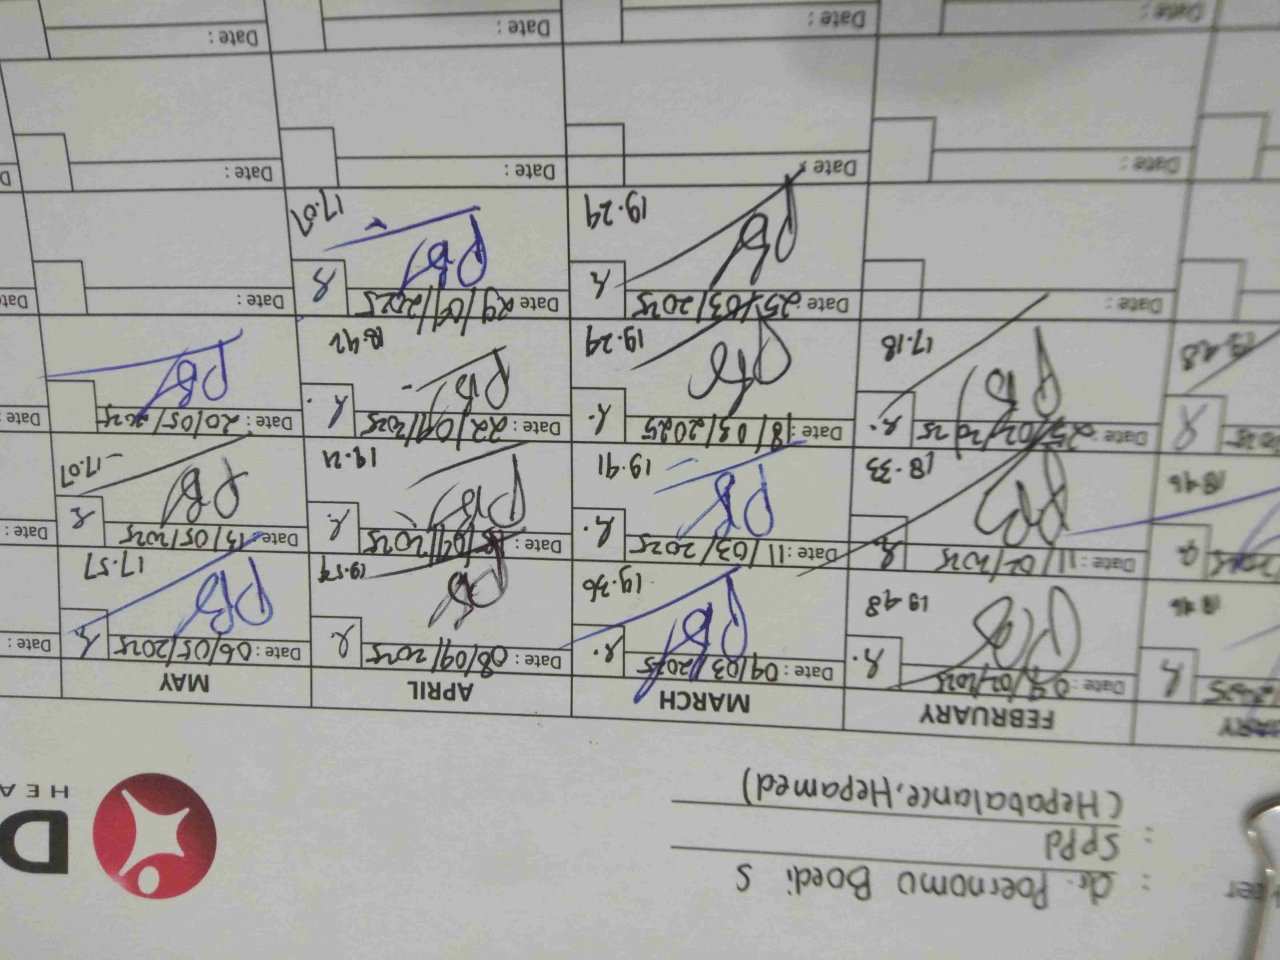 : dr. Poernomo Boedi S
SppD
: (Hepabalance, Hepamed)
D
HEA
FEBRUARY MARCH APRIL MAY
Date: 04/02/2025 Date: 04/03/2025 Date: 08/04/2025 Date: 06/05/2025 Date:
18.46 19.48 19.36 19.54 17.57
Date: 11/02/2025 Date: 11/03/2025 Date: 13/05/2025 Date:
18.46 18.33 19.41 19.21 17.07
Date: 25/02/2025 Date: 18/03/2025 Date: 22/04/2025 Date: 20/05/2025 Date:
17.18 19.29 18.42
Date: Date: 25/03/2025 Date: 29/04/2025 Date: Date:
19.29 17.07
Date: Date: Date: Date: D
Date: Date: Date: Date: